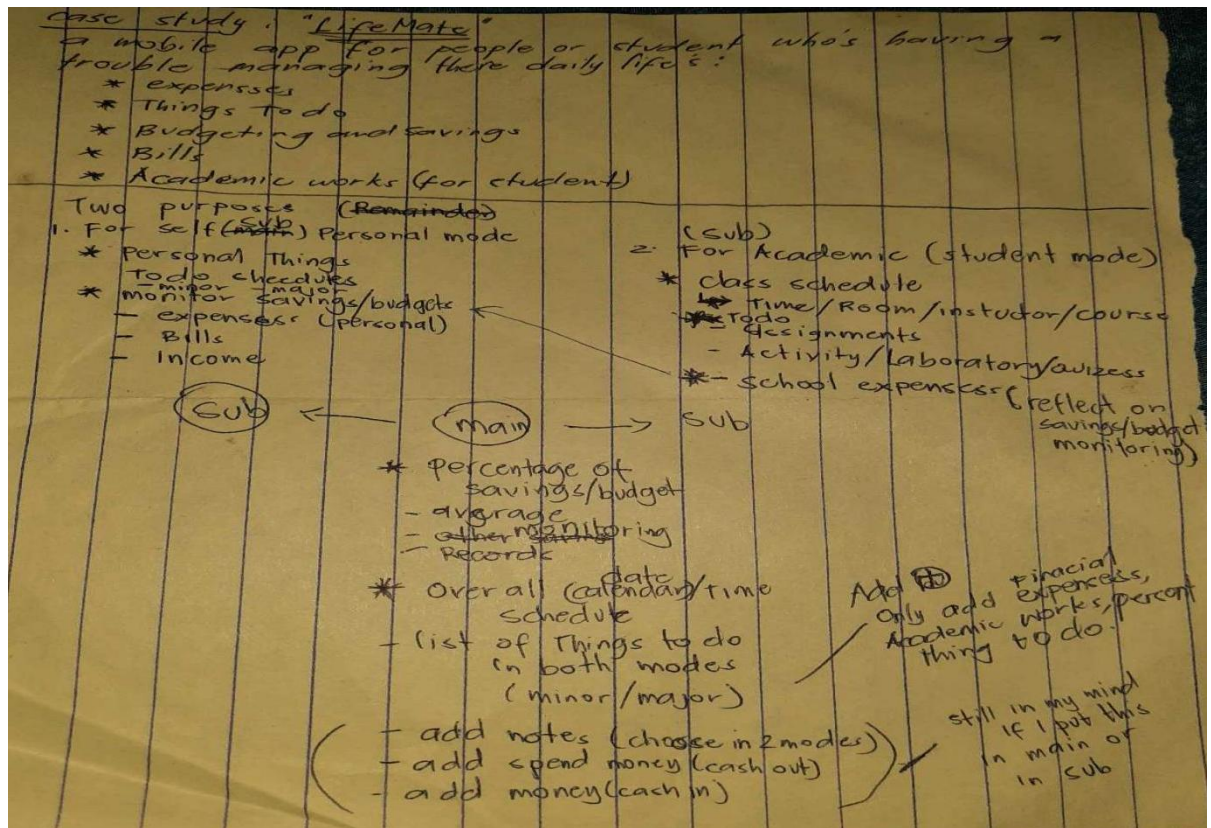 case study : "LifeMate"
a mobile app for people or student who's having a
trouble managing there daily life's :
* expensses
* Things To do
* Budgeting and savings
* Bills
* Academic works (for student)
Two purposes (Remainder)
1. For self (main) sub Personal mode
* Personal Things
Todo shecdules
- minor - major
* monitor savings/budgets
- expensess (personal)
- Bills
- Income
(sub)
2. For Academic (student mode)
* class schedule
↳ Time/Room/instuctor/course
* Todo
- assignments
- Activity/Laboratory/quizess
* - school expensess (reflect on
savings/budget
monitoring)
Sub ← main → sub
* percentage of
savings/budget
- average
- other monitoring
- Records
* Over all (calendar) date/time
schedule
- list of Things to do
in both modes
(minor/major)
Add +
only add finacial
expencess,
Academic works, percent
thing to do.
- add notes (choose in 2 modes)
- add spend money (cash out)
- add money (cash in)
still in my mind
if I put this
in main or
in sub